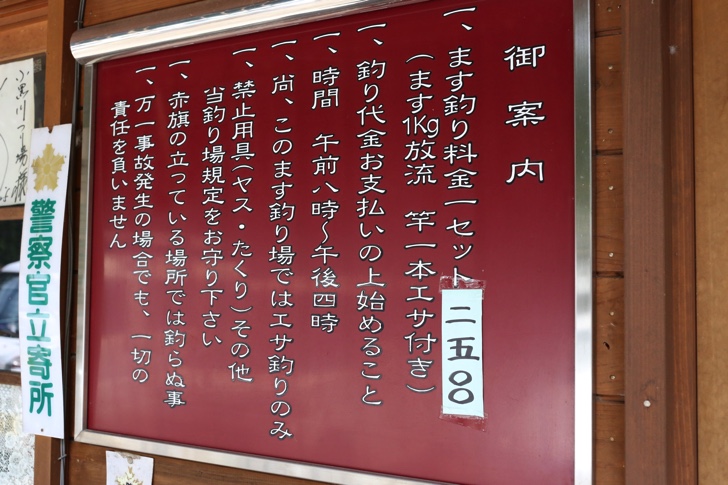 御案内
一、ます釣り料金一セット二五〇〇
(ます1Kg放流 竿一本エサ付き)
一、釣り代金お支払いの上始めること
一、時間 午前八時～午後四時
一、尚、このます釣り場ではエサ釣りのみ
一、禁止用具(ヤス・たくり)その他
当釣り場規定をお守り下さい
一、赤旗の立っている場所では釣らぬ事
一、万一事故発生の場合でも、一切の
責任を負いません
警察官立寄所